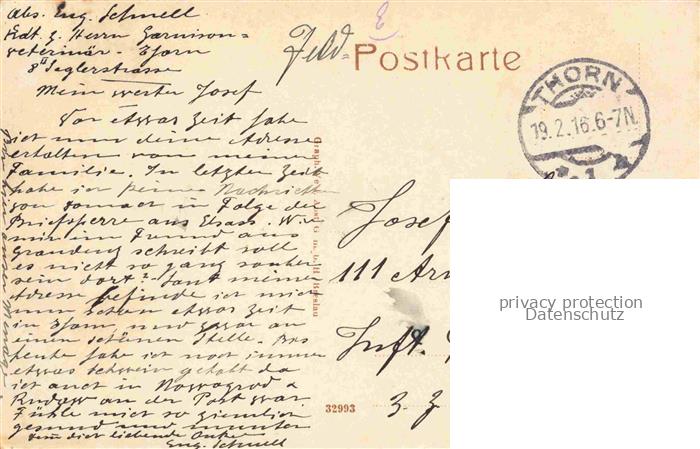 Abs. Eug. Schnell
Kdt. z. Herrn Garnison=
veterinär - Thorn
8II Seglerstrasse
Mein werter Josef
Vor etwas Zeit habe
ich nun deine Adresse
erhalten von meiner
Familie. In letzter Zeit
habe ich keine Nachrichten
von in Folge der
Briefsperre aus Elsass. Wie
mir ein Freund aus
Graudenz schreibt soll
es nicht so ganz sauber
sein dort? Laut meiner
Adresse befinde ich mich
nun schon etwas Zeit
in Thorn, und zwar an
einer schönen Stelle. Bis
heute habe ich noch immer
etwas Schwein gehabt da
ich auch in Nowogrod &
Rudzew an der Post war.
Fühle mich so ziemlich
gesund und munter
dein dich liebender Onkel
Eug. Schnell
Feld=
E
Postkarte
THORN
19.2.16.6-7N.
1
Graph. Verl.-Anst. G. m. b. H. Breslau
Josef
111
Inft.
3. Z
32993
privacy protection
Datenschutz